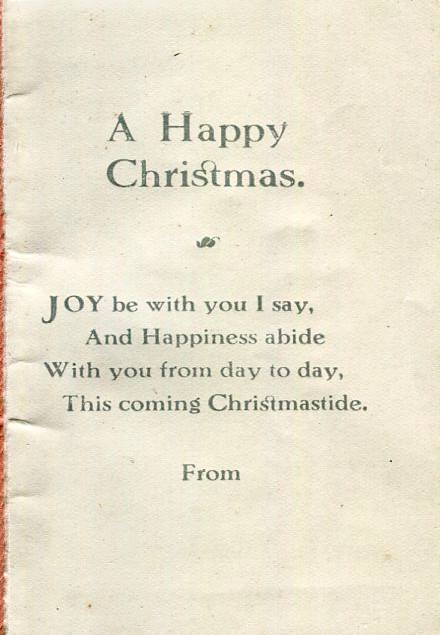 A Happy
Christmas.
JOY be with you I say,
And Happiness abide
With you from day to day,
This coming Christmastide.
From